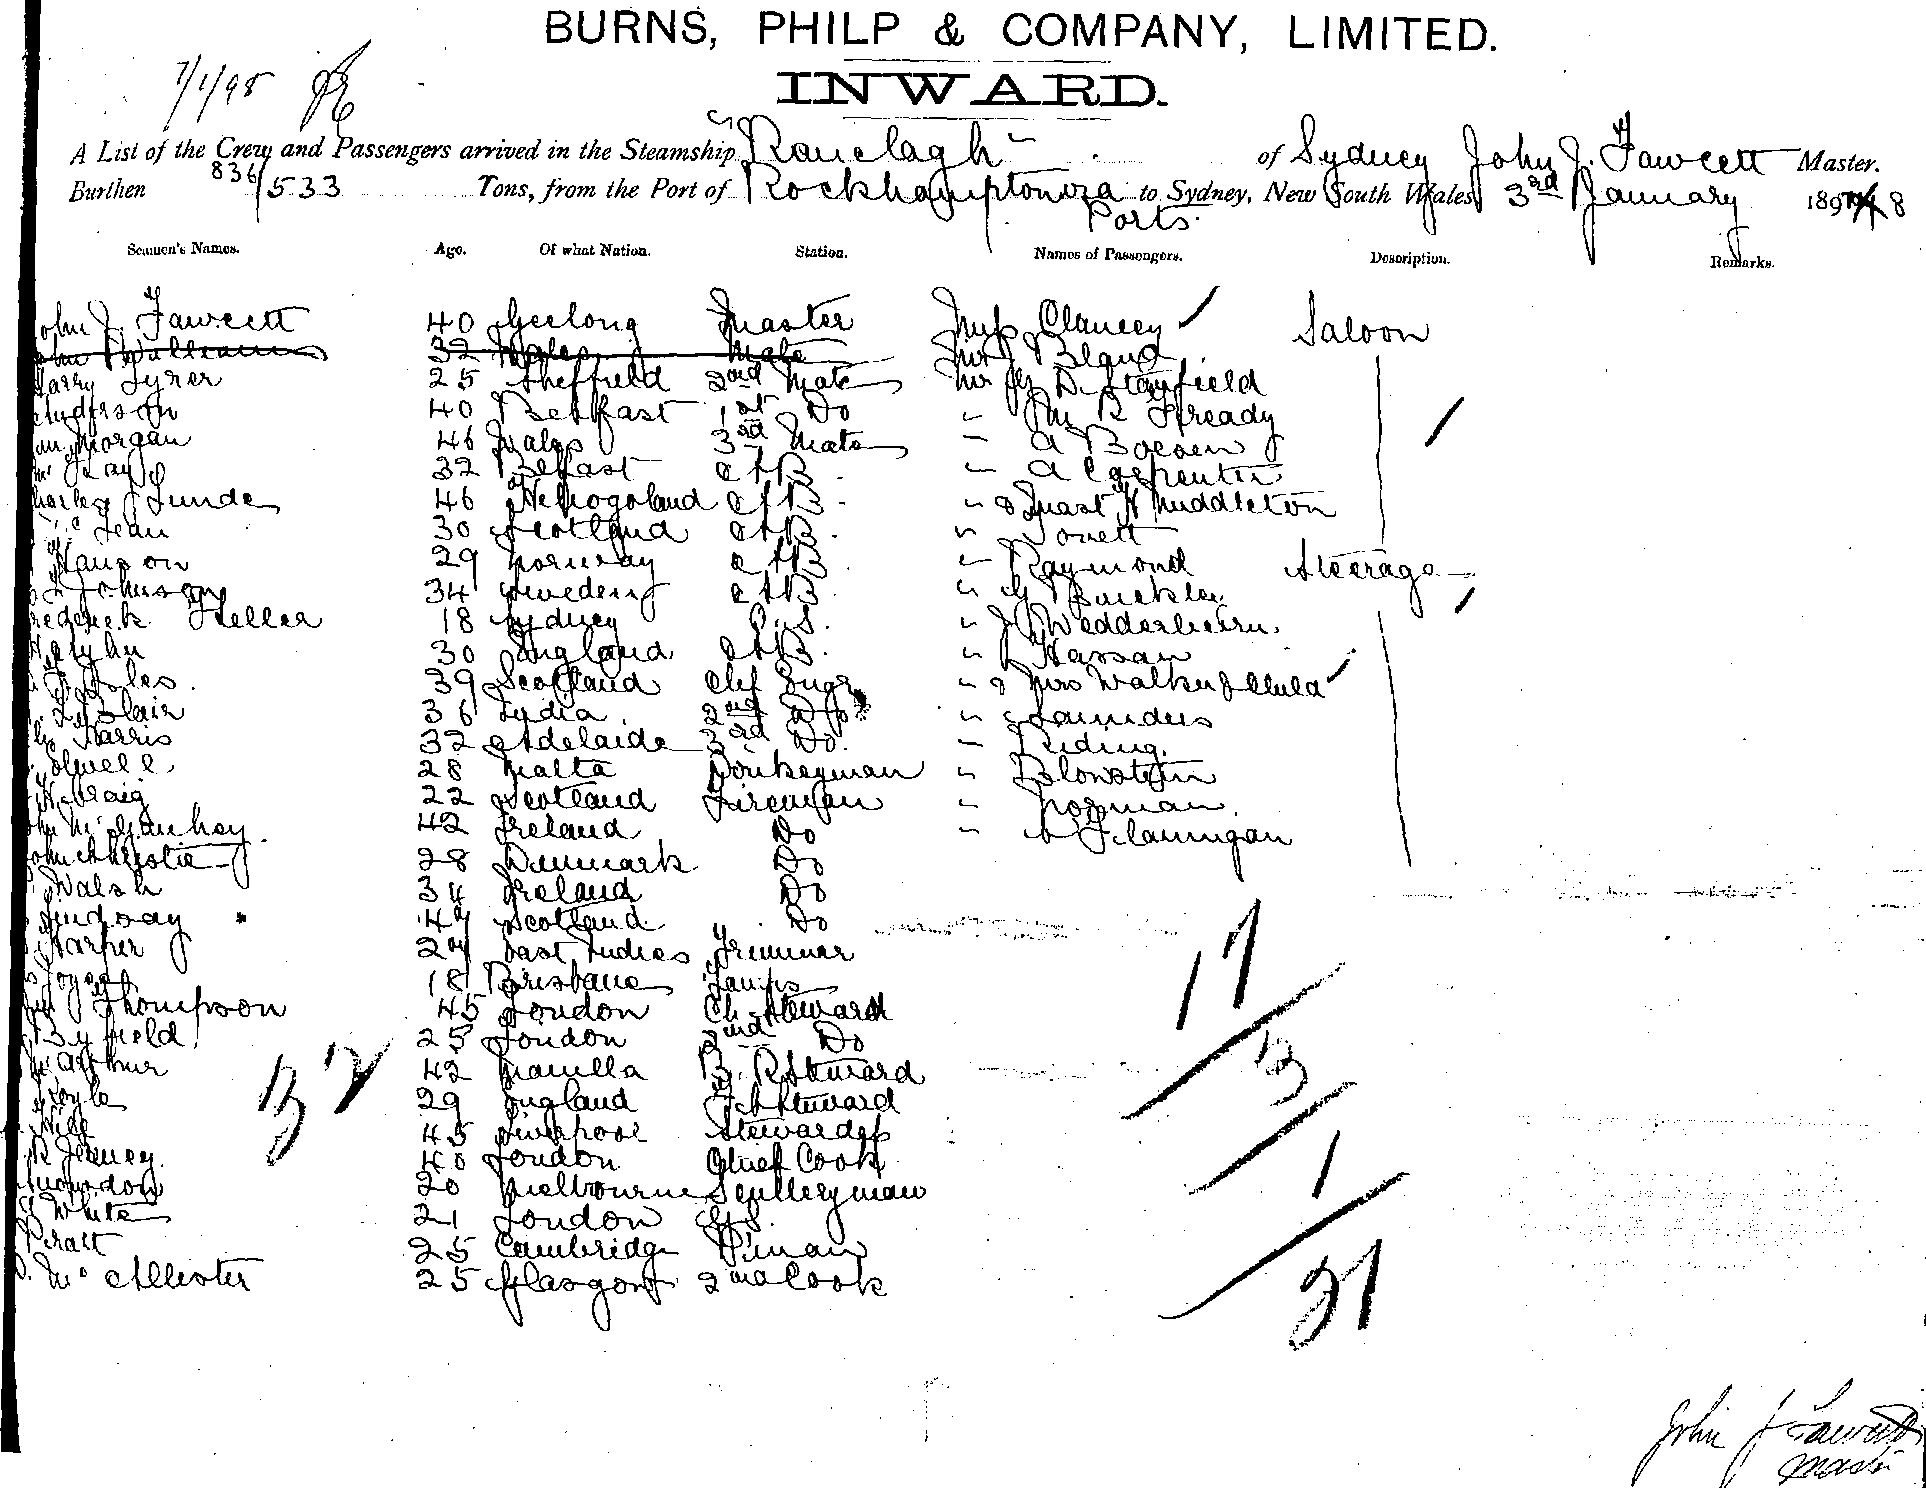 BURNS, PHILP & COMPANY, LIMITED.
INWARD.
7/1/98
A List of the Crew and Passengers arrived in the Steamship "Ranelagh" of Sydney John J. Fawcett Master.
Burthen 836/533 Tons, from the Port of Rockhampton via Ports to Sydney, New South Wales 3rd January 1898
Seamen's Names. Age. Of what Nation. Station. Names of Passengers. Description. Remarks.
John J. Fawcett 40 Geelong Master Miss Clancey Saloon
John Williams 32 Wales Mate Bland
Harry Tyrer 25 Sheffield 2nd Mate D. Stanfield
Anderson 40 Belfast 1st Do " Mr R Fready
Morgan 46 Wales 3rd Mate " A Boesen
32 Belfast A B " A Carpenter
Charles Lunde 46 Heligoland A B " Mast H Muddleton
Lean 30 Scotland A B "
Hanson 29 Norway A B " Raymond Steerage
Johnson 34 Sweden A B " Buckley
Frederick Heller 18 Sydney O.S. " J Wedderburn
30 England A B " Hassan
39 Scotland Chf Engr " Mrs Walker & Child
Blair 36 2nd Do " Saunders
Harris 32 Adelaide 3rd Do. " Riding
28 Malta Donkeyman " Blowstein
Craig 22 Scotland Fireman " Norman
John McGanhey 42 Ireland Do " Flannigan
John Christie 28 Denmark Do
Walsh 34 Ireland Do
Lindsay 47 Scotland Do
Harper 27 East Indies Trimmer
Joyce 18 Brisbane Lamps
Thompson 45 London Ch Steward
Byfield 25 London 2nd Do
McArthur 42 Manilla B. R Steward
29 England F.A Steward
Hill 45 Liverpool Stewardess
40 London Chief Cook
Snowdon 20 Melbourne Sculleryman
White 21 London
Peratt 25 Cambridge
McAllister 25 Glasgow 2nd Cook
32
17
3
1
21
John J Fawcett
Master